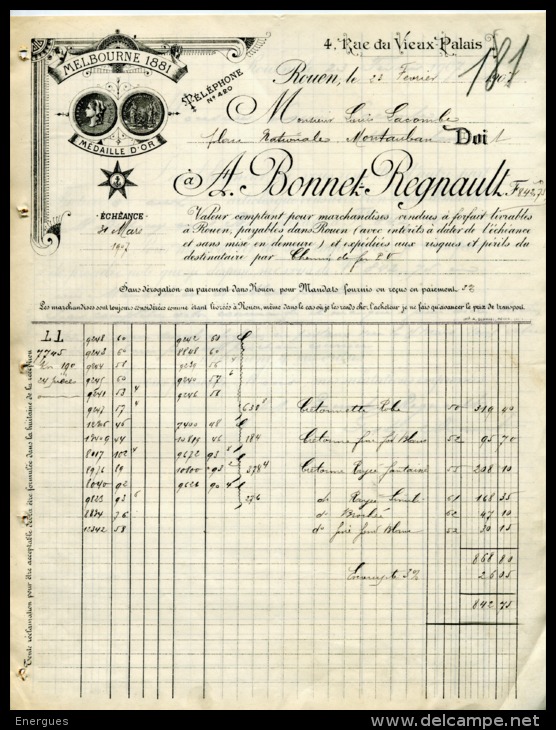 MELBOURNE 1881
MÉDAILLE D'OR
TÉLÉPHONE
N° 420
4, Rue du Vieux Palais
181
Rouen, le 23 Février 190
Monsieur Louis Lacombe
place Nationale Montauban Doit
à A. Bonnet-Regnault F 842,75
ÉCHÉANCE
31 Mars
1907
Valeur comptant pour marchandises, vendues à forfait livrables
à Rouen, payables dans Rouen (avec intérêts à dater de l'échéance
et sans mise en demeure) et expédiées aux risques et périls du
destinataire par Chemin de fer P.V.
Sans dérogation au paiement dans Rouen pour Mandats fournis ou reçus en paiement. 3%
Les marchandises sont toujours considérées comme étant livrées à Rouen, même dans le cas où je les rends chez l'acheteur je ne fais qu'avancer le prix de transport.
Toute réclamation pour être acceptable devra être formulée dans la huitaine de la réception
LL
7745
24 pièces
9248 60 9242 60
9243 60
9244 58
9245 60 9240 57
9241 53 9246 58
9247 57
638 Cretonnette 50 319 40
46 7400 48
44 10819 46 184 Cretonne fond Blanc 52 95 70
8017 102 9672 93
8976 89 378 Cretonne Rayée fantaisie 55 208 10
8040 92 90
93 276 do Rayée 61 168 35
76 do Brochée 62 47 10
58 do fond Blanc 52 30 15
868 80
Escompte 3% 26 05
842 75
Energues
www.delcampe.net